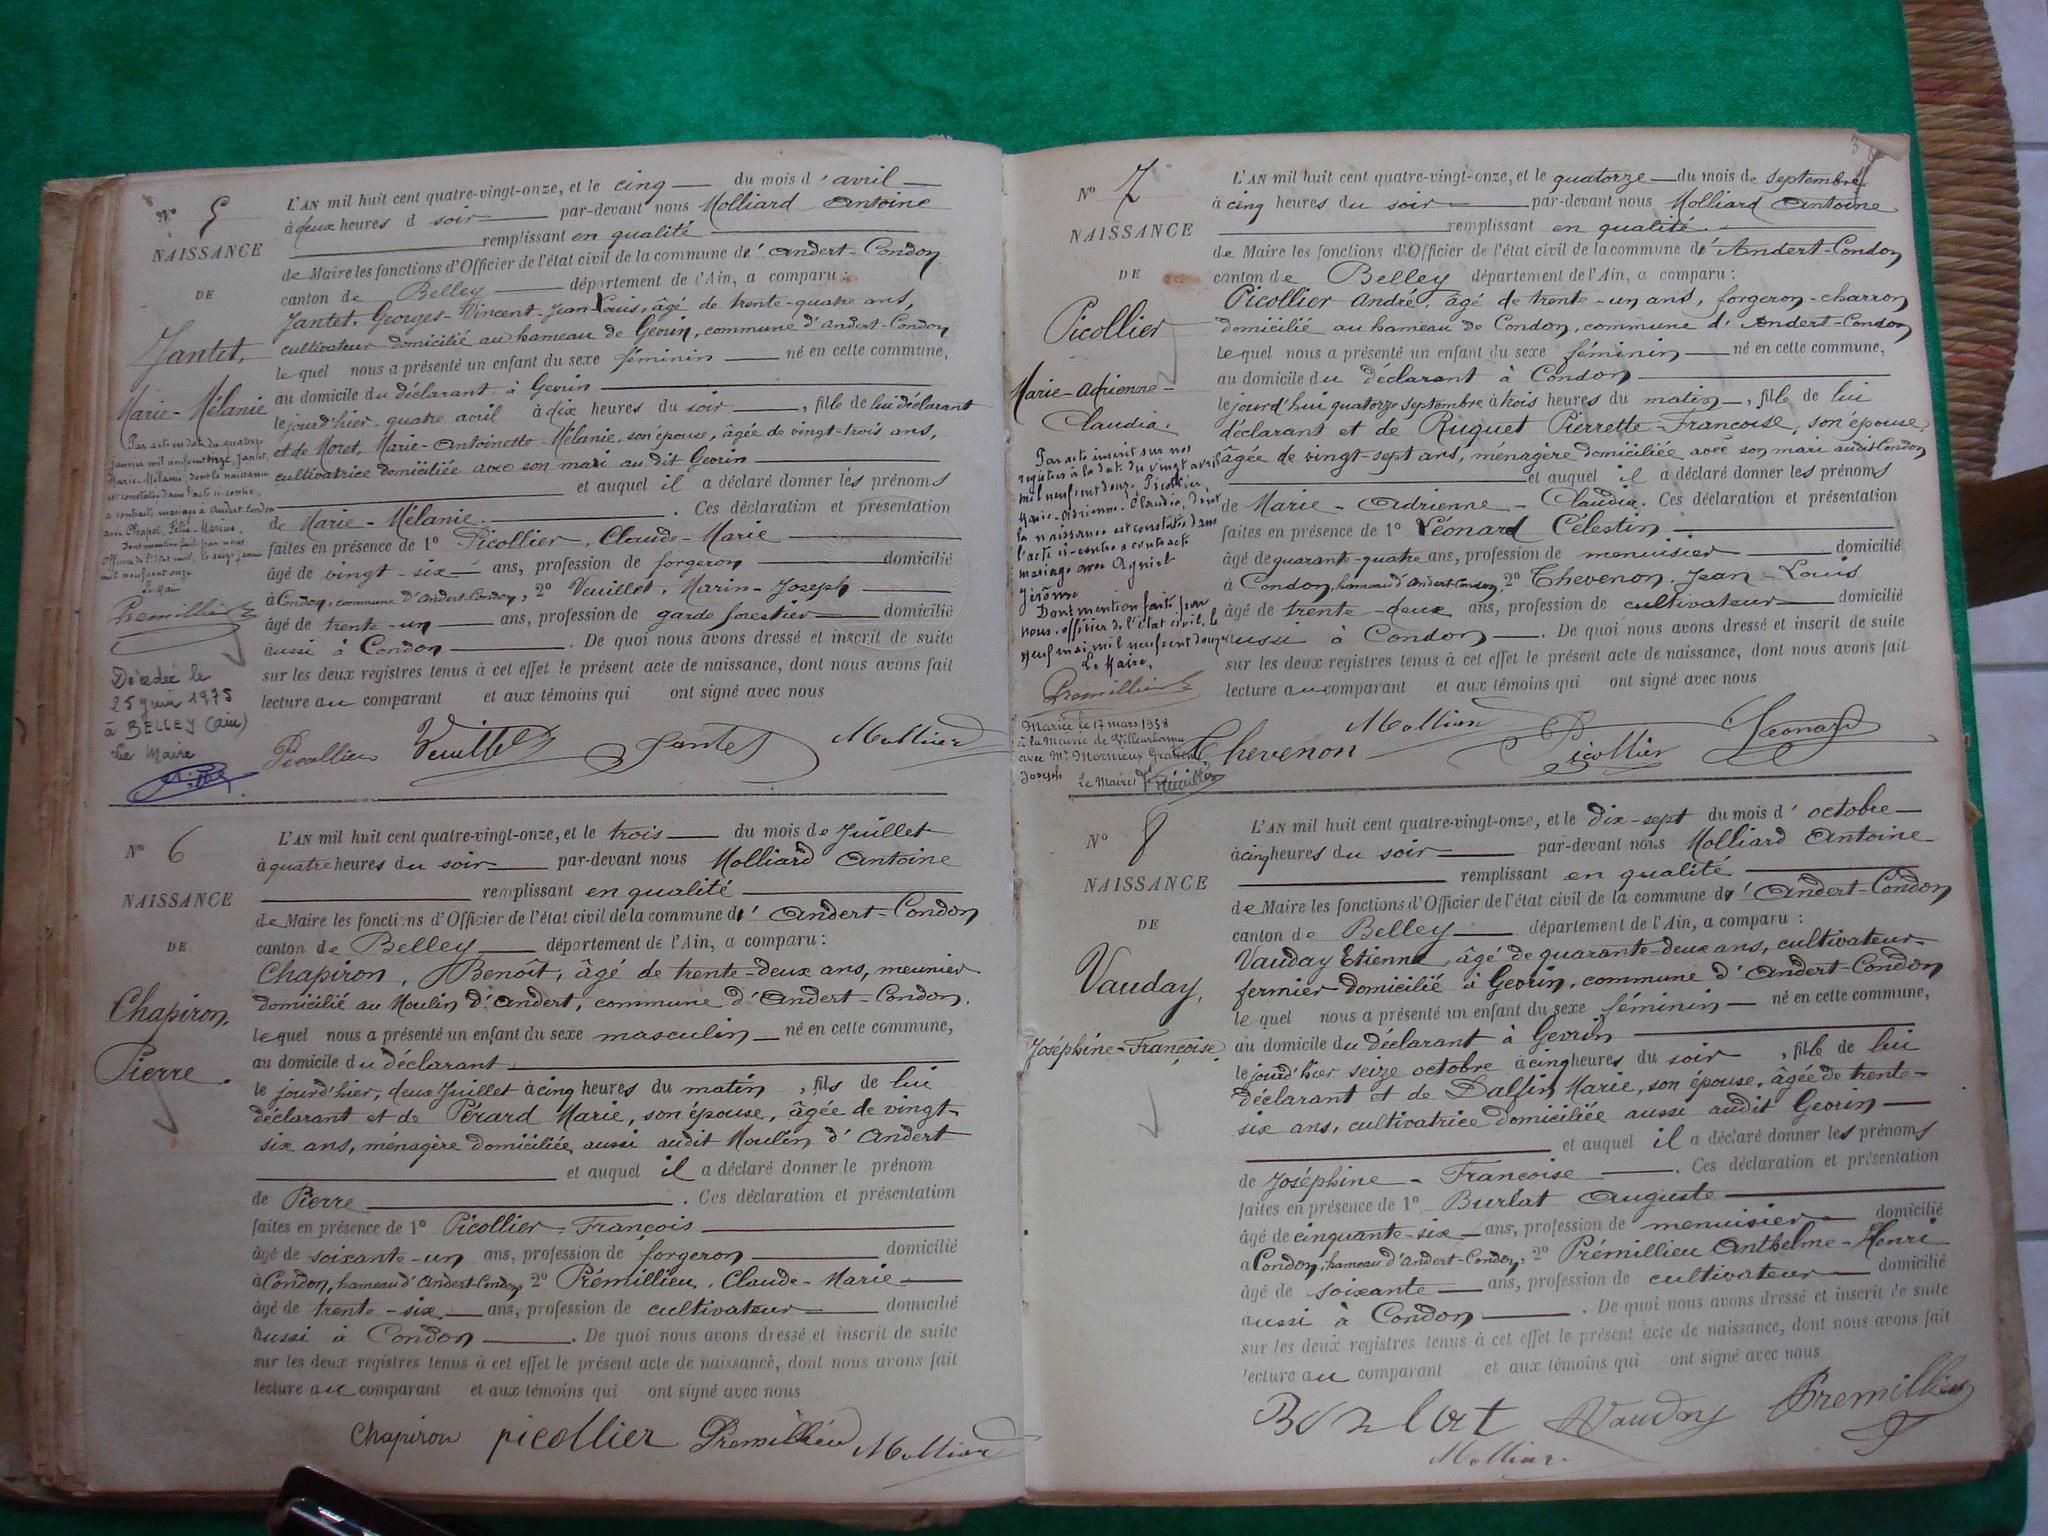 N° 5
NAISSANCE
DE
Jantet,
Marie-Mélanie
Par acte en date du quatorze
janvier mil neuf cent onze, Jantet,
Marie-Mélanie, dont la naissance
est constatée dans l'acte ci-contre,
a contracté mariage à Andert-Condon
avec Chapot, Félix-Marius.
Dont mention faite par nous
Officier de l'état civil, le seize janvier
mil neuf cent onze
Le Maire
Premillieu
Décédée le
25 juin 1975
à BELLEY (Ain)
Le Maire
L'AN mil huit cent quatre-vingt-onze, et le cinq du mois d'avril
à deux heures d soir par-devant nous Molliard Antoine
remplissant en qualité
de Maire les fonctions d'Officier de l'état civil de la commune d'Andert-Condon
canton de Belley département de l'Ain, a comparu :
Jantet, Georges-Vincent-Jean-Louis, âgé de trente-quatre ans,
cultivateur domicilié au hameau de Gevrin, commune d'Andert-Condon
lequel nous a présenté un enfant du sexe féminin né en cette commune,
au domicile du déclarant à Gevrin
le jourd'hier quatre avril à dix heures du soir, fille de lui déclarant
et de Moret, Marie-Antoinette-Mélanie, son épouse, âgée de vingt-trois ans,
cultivatrice domiciliée avec son mari au dit Gevrin
et auquel il a déclaré donner les prénoms
de Marie-Mélanie. Ces déclaration et présentation
faites en présence de 1° Picollier, Claude-Marie
âgé de vingt-six ans, profession de forgeron domicilié
à Condon, commune d'Andert-Condon, 2° Veuillet, Marin-Joseph
âgé de trente-un ans, profession de garde forestier domicilié
aussi à Condon. De quoi nous avons dressé et inscrit de suite
sur les deux registres tenus à cet effet le présent acte de naissance, dont nous avons fait
lecture au comparant et aux témoins qui ont signé avec nous
Picollier Veuillet Jantet Molliard
N° 6
NAISSANCE
DE
Chapiron,
Pierre.
L'AN mil huit cent quatre-vingt-onze, et le trois du mois de Juillet
à quatre heures du soir par-devant nous Molliard Antoine
remplissant en qualité
de Maire les fonctions d'Officier de l'état civil de la commune d'Andert-Condon
canton de Belley département de l'Ain, a comparu :
Chapiron, Benoît, âgé de trente-deux ans, meunier
domicilié au Moulin d'Andert, commune d'Andert-Condon,
lequel nous a présenté un enfant du sexe masculin né en cette commune,
au domicile du déclarant
le jourd'hier, deux Juillet à cinq heures du matin, fils de lui
déclarant et de Pérard Marie, son épouse, âgée de vingt-
six ans, ménagère domiciliée aussi audit Moulin d'Andert
et auquel il a déclaré donner le prénom
de Pierre. Ces déclaration et présentation
faites en présence de 1° Picollier, François
âgé de soixante-un ans, profession de forgeron domicilié
à Condon, hameau d'Andert-Condon, 2° Prémillieu, Claude-Marie
âgé de trente-six ans, profession de cultivateur domicilié
aussi à Condon. De quoi nous avons dressé et inscrit de suite
sur les deux registres tenus à cet effet le présent acte de naissance, dont nous avons fait
lecture au comparant et aux témoins qui ont signé avec nous
Chapiron picollier Premillieu Molliard
N° 7
NAISSANCE
DE
Picollier
Marie-Adrienne-
Claudia.
Par acte inscrit sur nos
registres à la date du vingt avril
mil neuf cent douze, Picollier,
Marie-Adrienne-Claudia, dont
la naissance est constatée dans
l'acte ci-contre a contracté
mariage avec Agniel
Jérôme
Dont mention faite par
nous, officier de l'état civil, le
neuf mai mil neuf cent douze
Le Maire,
Premillieu
Mariée le 17 mars 1958
à la Mairie de Villeurbanne
avec Mr Mormieux Gratien
Joseph Le Maire
L'AN mil huit cent quatre-vingt-onze, et le quatorze du mois de septembre
à cinq heures du soir par-devant nous Molliard Antoine
remplissant en qualité
de Maire les fonctions d'Officier de l'état civil de la commune d'Andert-Condon
canton de Belley département de l'Ain, a comparu :
Picollier André, âgé de trente-un ans, forgeron-charron
domicilié au hameau de Condon, commune d'Andert-Condon
lequel nous a présenté un enfant du sexe féminin né en cette commune,
au domicile du déclarant à Condon
le jourd'hui quatorze septembre à trois heures du matin, fille de lui
déclarant et de Ruguet Pierrette-Françoise, son épouse,
âgée de vingt-sept ans, ménagère domiciliée avec son mari audit Condon
et auquel il a déclaré donner les prénoms
de Marie-Adrienne-Claudia. Ces déclaration et présentation
faites en présence de 1° Léonard Célestin
âgé de quarante-quatre ans, profession de menuisier domicilié
à Condon, hameau d'Andert-Condon, 2° Thevenon, Jean-Louis
âgé de trente-deux ans, profession de cultivateur domicilié
aussi à Condon. De quoi nous avons dressé et inscrit de suite
sur les deux registres tenus à cet effet le présent acte de naissance, dont nous avons fait
lecture au comparant et aux témoins qui ont signé avec nous
Thevenon Molliard Picollier Leonard
N° 8
NAISSANCE
DE
Vauday,
Joséphine-Françoise
L'AN mil huit cent quatre-vingt-onze, et le dix-sept du mois d'octobre
à cinq heures du soir par-devant nous Molliard Antoine
remplissant en qualité
de Maire les fonctions d'Officier de l'état civil de la commune d'Andert-Condon
canton de Belley département de l'Ain, a comparu :
Vauday Etienne, âgé de quarante-deux ans, cultivateur-
fermier domicilié à Gevrin, commune d'Andert-Condon
lequel nous a présenté un enfant du sexe féminin né en cette commune,
au domicile du déclarant à Gevrin
le jourd'hier seize octobre à cinq heures du soir, fille de lui
déclarant et de Dalfin Marie, son épouse, âgée de trente-
six ans, cultivatrice domiciliée aussi audit Gevrin
et auquel il a déclaré donner les prénoms
de Joséphine-Françoise. Ces déclaration et présentation
faites en présence de 1° Burlat Auguste
âgé de cinquante-six ans, profession de menuisier domicilié
à Condon, hameau d'Andert-Condon, 2° Prémillieu Anthelme-Henri
âgé de soixante ans, profession de cultivateur domicilié
aussi à Condon. De quoi nous avons dressé et inscrit de suite
sur les deux registres tenus à cet effet le présent acte de naissance, dont nous avons fait
lecture au comparant et aux témoins qui ont signé avec nous
Burlat Vauday Premillieu
Molliard